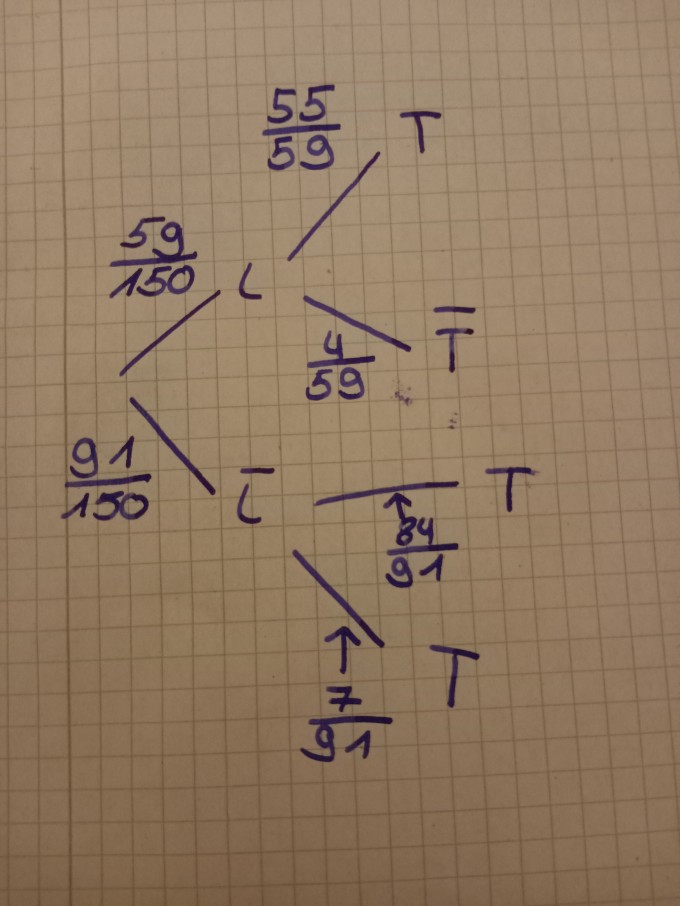 55/59 T
59/150 L
4/59 T̅
91/150 L̅ T
84/91
T
7/91